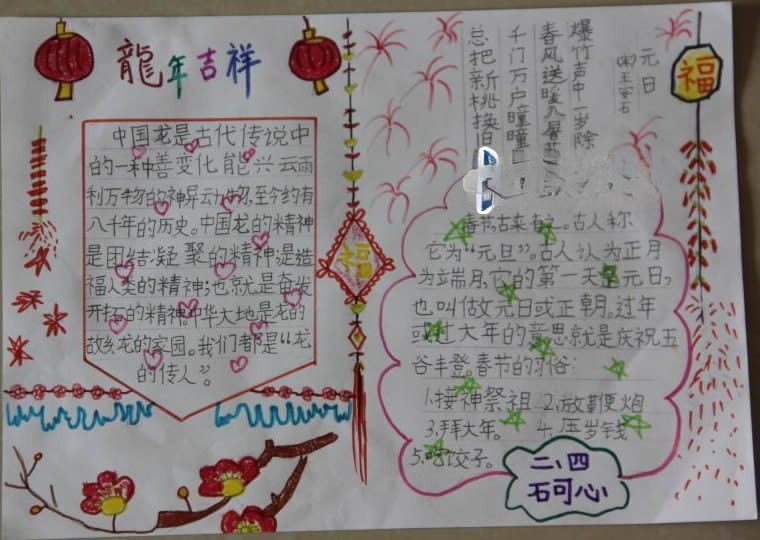 龍年吉祥
中国龙是古代传说中
的一种善变化能兴云雨
利万物的神异动物,至今约有
八千年的历史。中国龙的精神
是团结凝聚的精神;是造
福人类的精神;也就是奋发
开拓的精神。中华大地是龙的
故乡龙的家园。我们都是“龙
的传人”。
福
元日
(宋)王安石
爆竹声中一岁除
春风送暖入屠苏
千门万户曈曈日
总把新桃换旧
福
春节,古来有之。古人称
它为“元旦”。古人认为正月
为端月,它的第一天是元日,
也叫做元日或正朝。过年
或过大年的意思就是庆祝五
谷丰登。春节的习俗:
1.接神祭祖 2.放鞭炮
3.拜大年。 4.压岁钱
5.吃饺子。
二、四
石可心